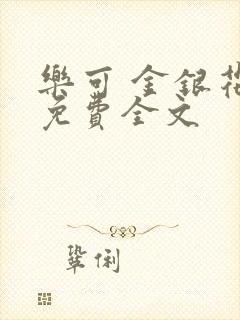 樂可 金銀花
免費全文
鞏俐